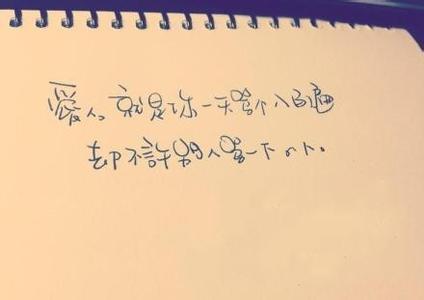 愛人。就是你一天骂个八百遍
却不許别人骂一下の人。